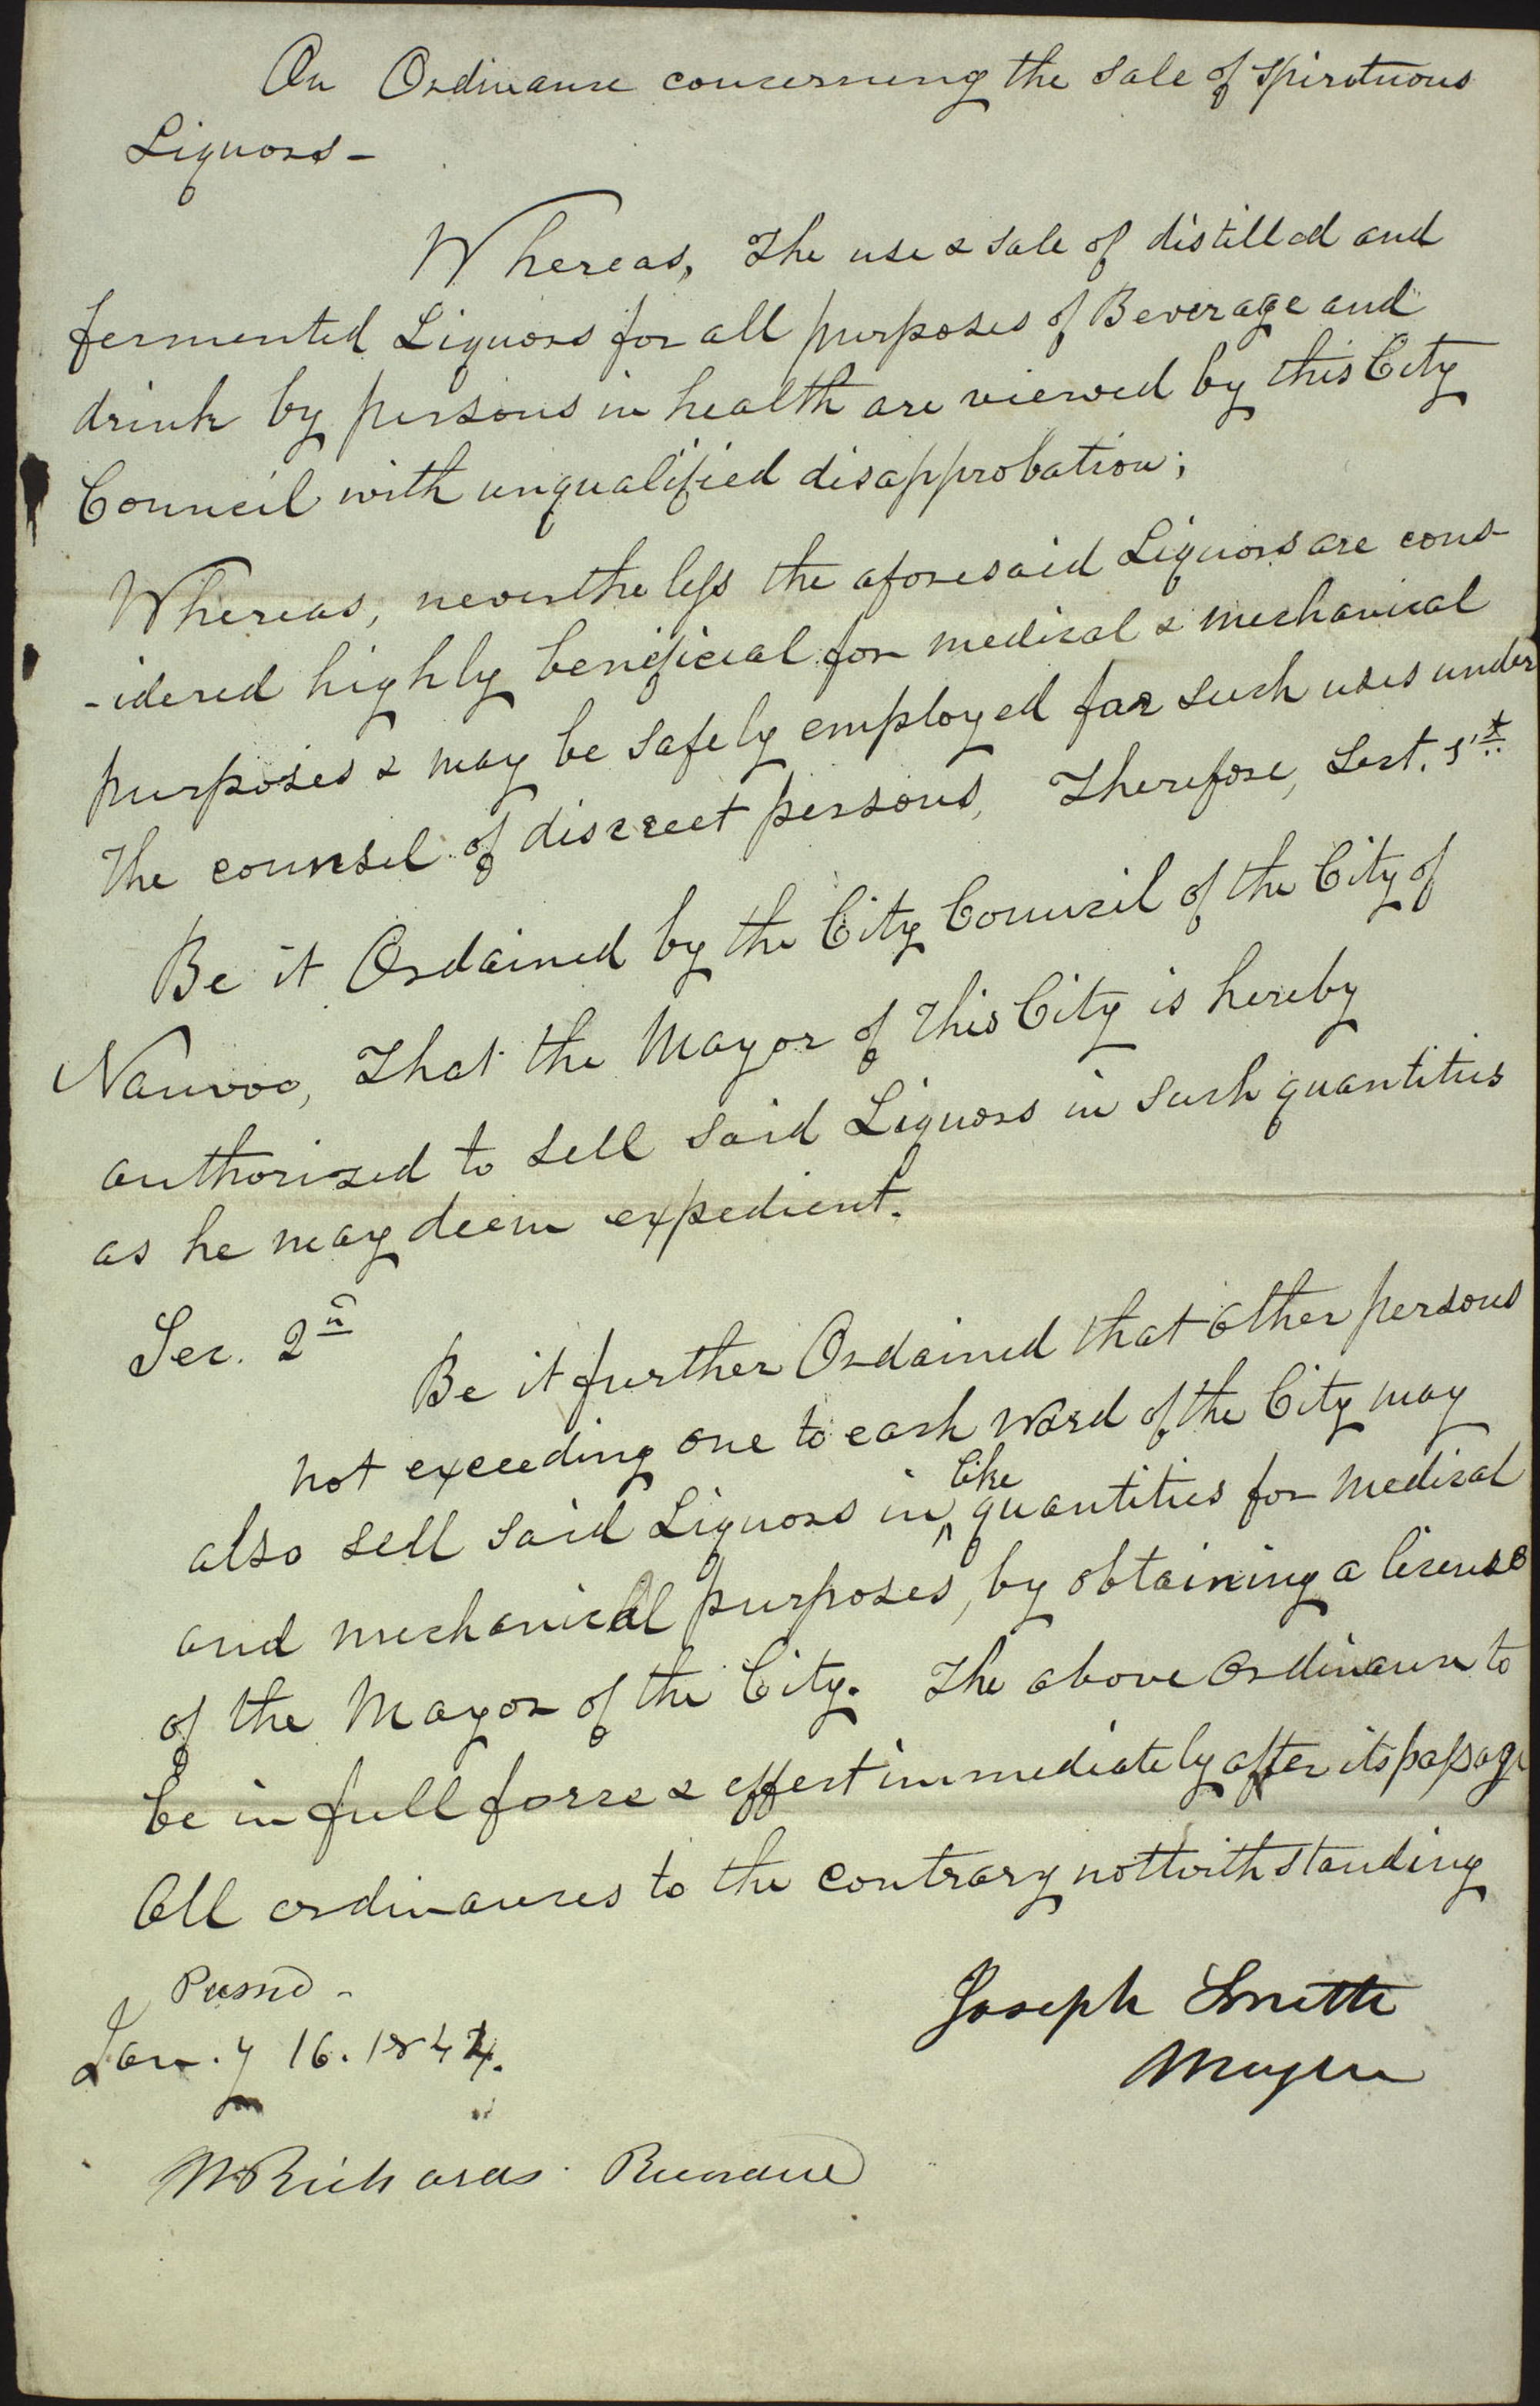 An Ordinance concerning the sale of spirituous
Liquors-
Whereas, The use & sale of distilled and
fermented Liquors for all purposes of Beverage and
drink by persons in health are viewed by this City
Council with unqualified disapprobation;
Whereas, nevertheless the aforesaid Liquors are cons-
-idered highly benificial for medical & mechanical
purposes & may be safely employed for such uses under
the counsel of discreet persons, Therefore, Sect. 1st
Be it Ordained by the City Council of the City of
Nauvoo, That the Mayor of this City is hereby
authorized to sell said Liquors in such quantities
as he may deem expedient.
Sec. 2n
Be it further Ordained that other persons
not exceeding one to each ward of the City may
like
also sell said Liquors in ^ quantities for medical
and mechanical purposes, by obtaining a license
of the Mayor of the City. The above Ordinance to
be in full force & effect immediately after its passage
All ordinances to the contrary notwithstanding
Passed -
Joseph Smith
Jan.y 16. 1844.
Mayor
W Richards. Recorder